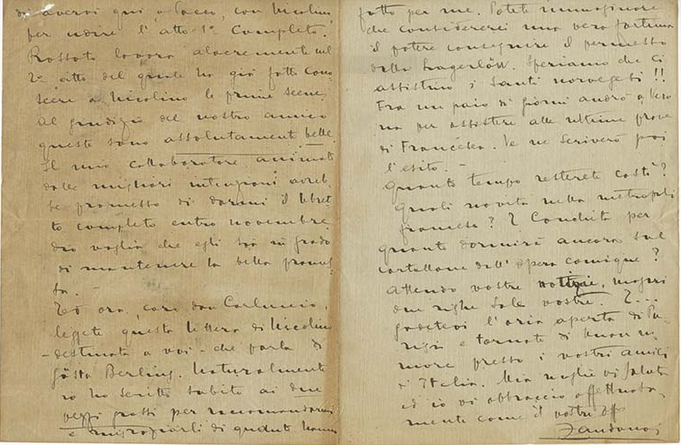 di avervi qui a Sacco, con Nicolino
per udire l'atto 1º completo.
Rossato lavora alacremente sul
2º atto del quale ha già fatto cono
scere a Nicolino le prime scene.
Al giudizio del nostro amico
queste sono assolutamente belle.
Il mio collaboratore animato
dalle migliori intenzioni avreb-
be promesso di darmi il libret
to completo entro novembre.
Dio voglia che egli sia in grado
di mantenere la bella promes
sa. -
Ed ora, caro don Carluccio,
leggete questa lettera di Nicolino
- destinata a voi - che parla di
Gösta Berling. Naturalmente
io ho scritto subito ai due
pezzi grossi per raccomandarmi
e ringraziarli di quanto hanno
fatto per me. Potete immaginare
che considererei una vera fortuna
il potere conseguire il permesso
della Lagerlöff. Speriamo che ci
assistino i Santi norvegesi!!
Fra un paio di giorni andrò a Pesa
ro per assistere alle ultime prove
di Francesca. Ve ne scriverò poi
l'esito. -
Quanto tempo resterete costì?
Quali novità nella metropoli
francese? E Conchita per
quanto dormirà ancora sul
cartellone dell'Opera comique?
Attendo vostre notizie, magari
due righe sole vostre. E...
godetevi l'aria aperta di Pa
rigi e tornate di buon u-
more presso i vostri amici
d'Italia. Mia moglie vi saluta
ed io vi abbraccio affettuosa-
mente come il vostro aff
Zandonai